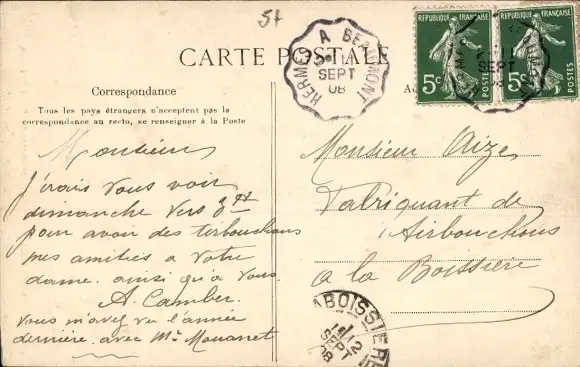 57
CARTE POSTALE
HERMES A BEAUMONT
11
SEPT
08
REPUBLIQUE FRANÇAISE
5c
POSTES
REPUBLIQUE FRANÇAISE
5c
POSTES
SEPT
Correspondance
Tous les pays étrangers n'acceptent pas la
correspondance au recto, se renseigner à la Poste
Monsieur
J'irais vous voir
dimanche vers 3H
pour avoir des tirbouchons
mes amitiés a votre
dame ainsi qu'a vous.
A. Camber
vous m'avez vu l'année
dernière avec Mr Mouanet
Monsieur Aize
Fabriquant de
Tirbouchons
a la Boissière
LABOISSIERE
12
SEPT
08